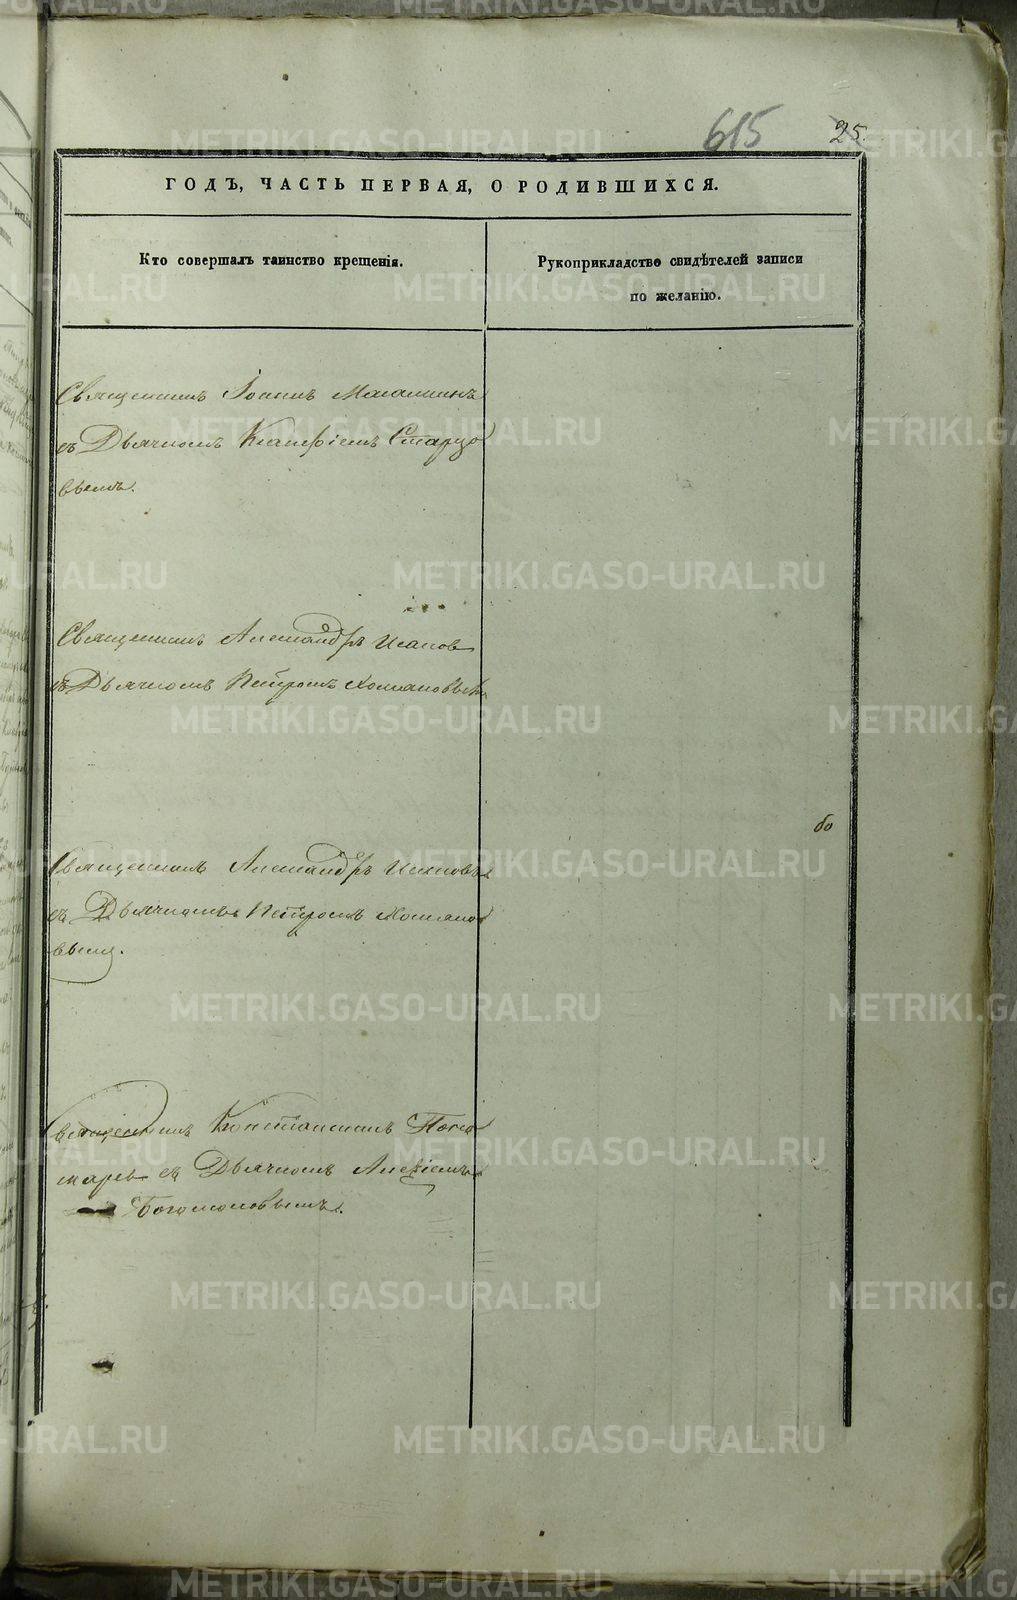 615
25.
ГОДЪ, ЧАСТЬ ПЕРВАЯ, О РОДИВШИХСЯ.
Кто совершалъ таинство крещенія.
Рукоприкладство свидѣтелей записи
по желанію.
Священникъ Іоаннъ
съ Дьячкомъ Старцо
вымъ.
Священникъ Александръ Исаков
съ Дьячкомъ Петромъ Холмановымъ
Священникъ Александръ Исаковъ
съ Дьячкомъ Петромъ Холмано
вымъ.
Священникъ Константинъ Поно
маревъ съ Дьячкомъ Алексіемъ
Богомоловымъ.
METRIKI.GASO-URAL.RU